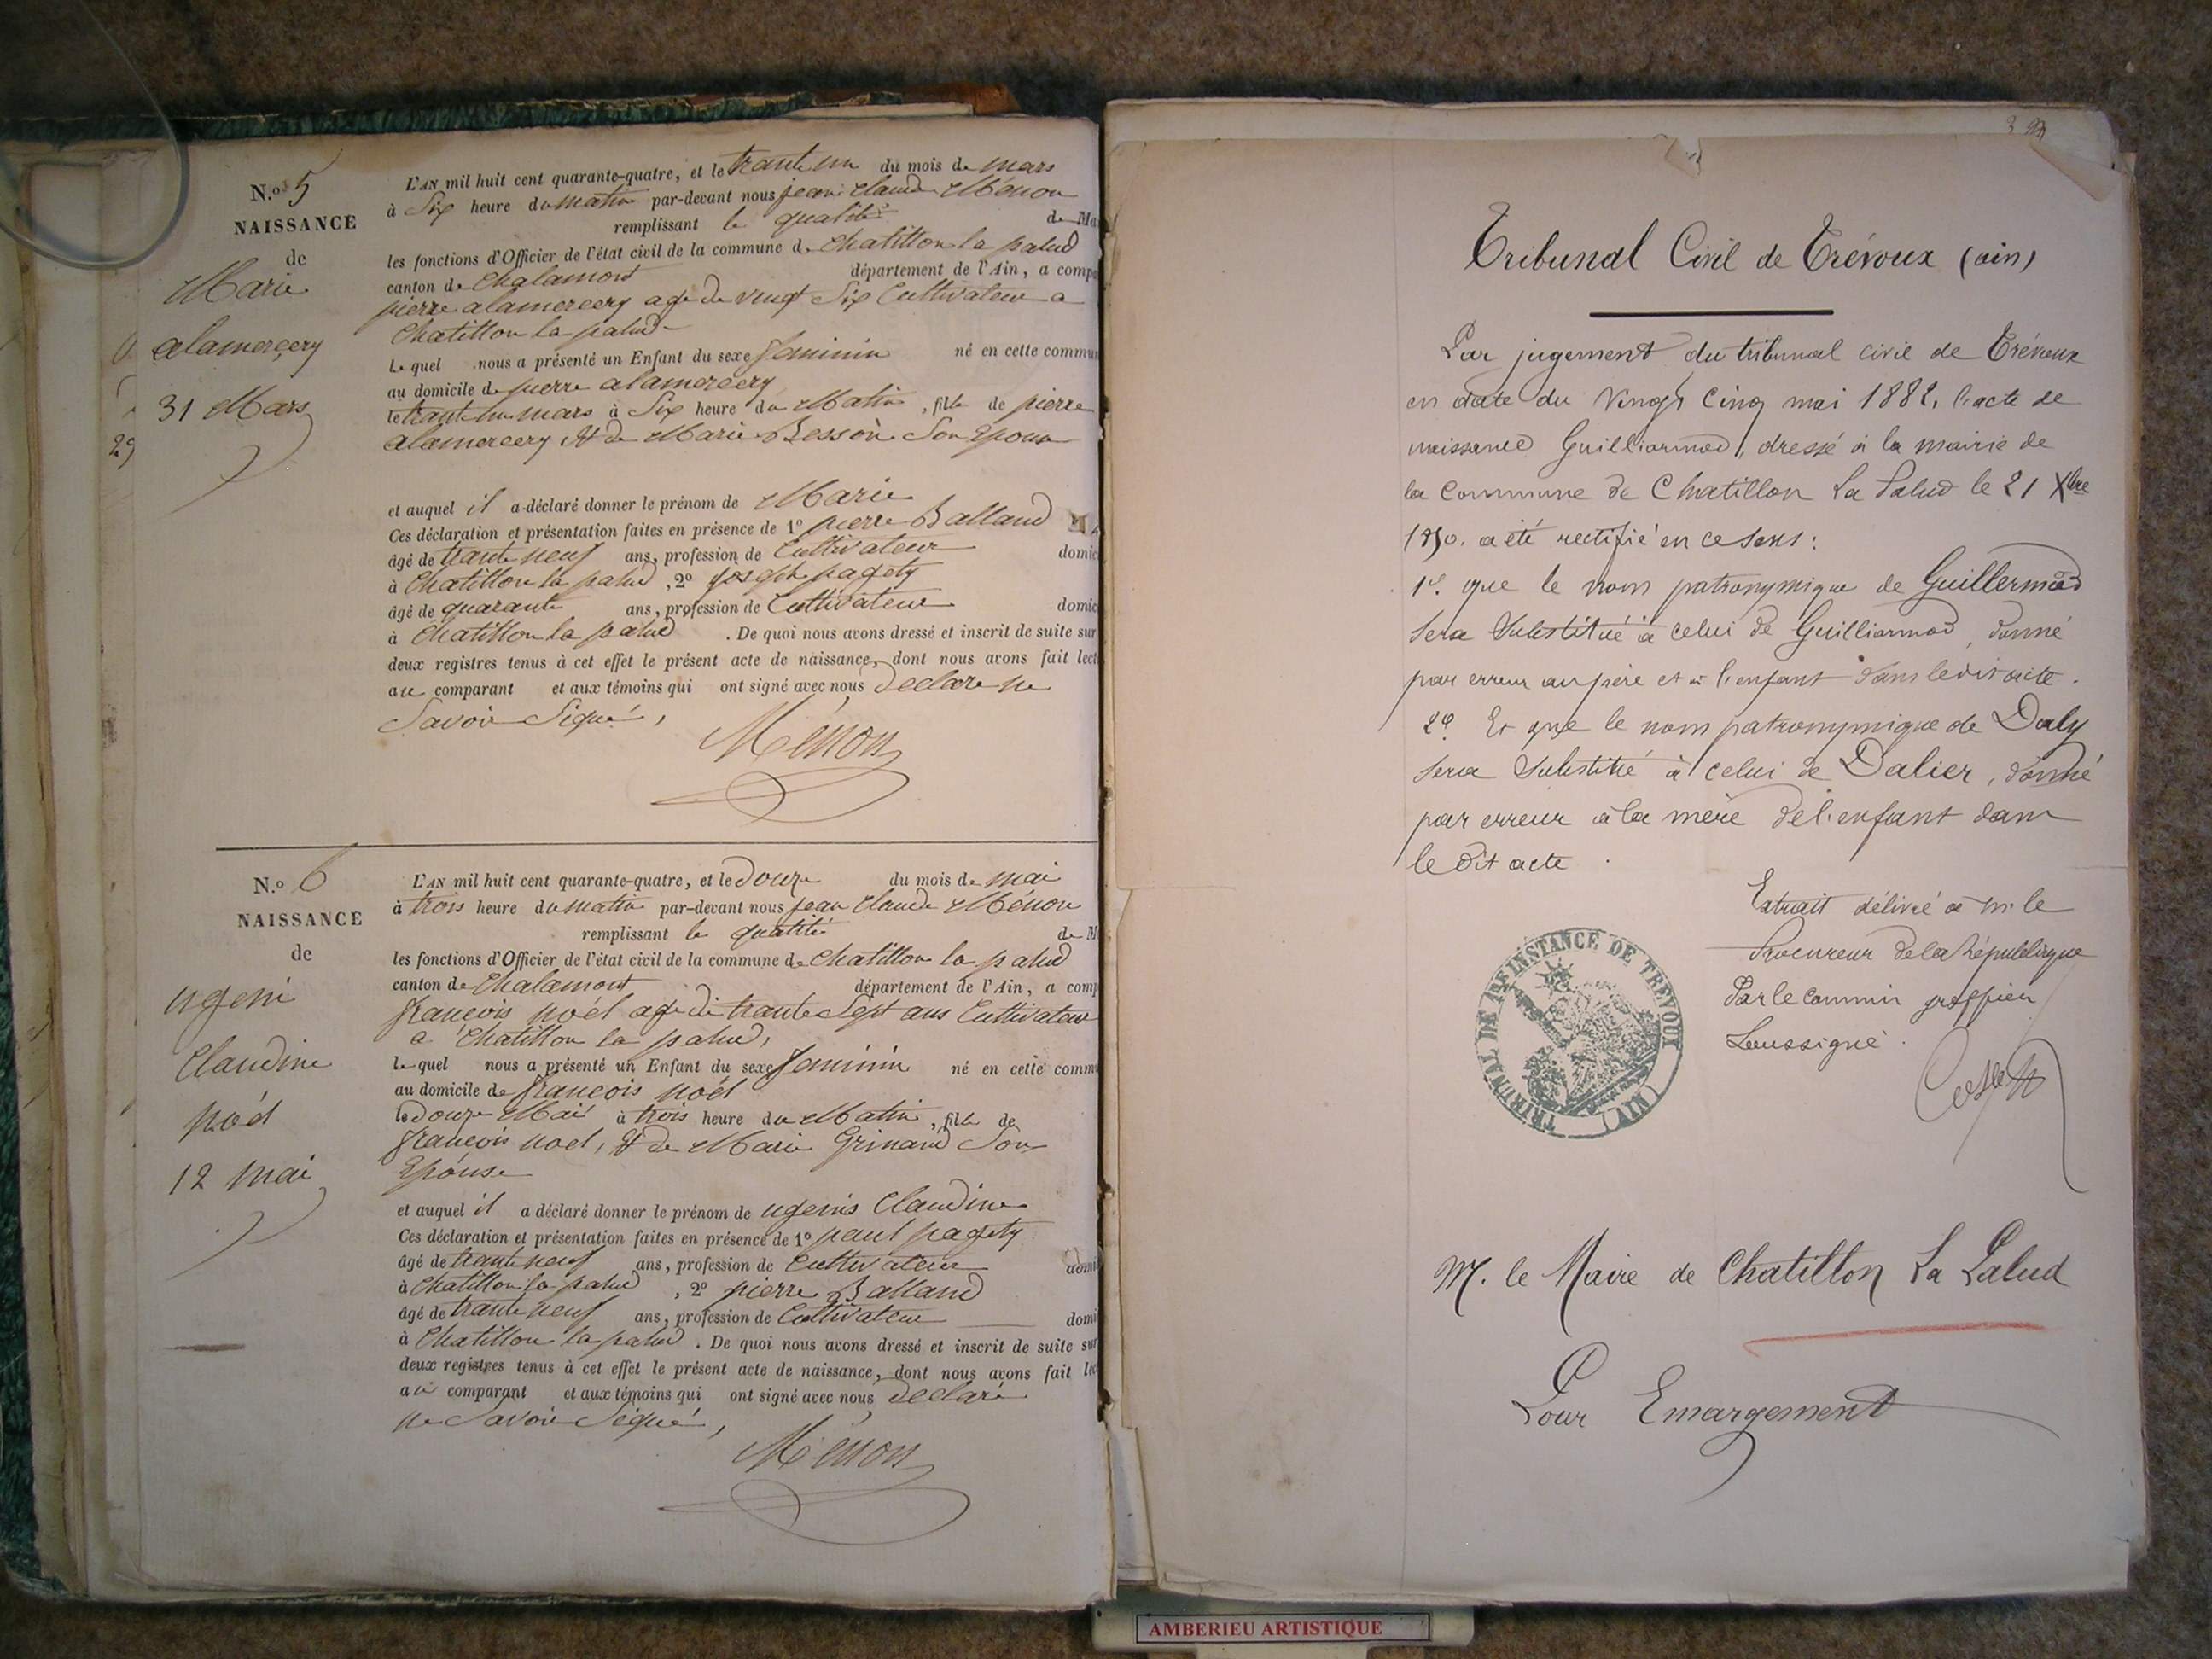 N.o 5
NAISSANCE
de
Marie
alamerçery
31 Mars
29
L'AN mil huit cent quarante-quatre, et le trante un du mois de mars
à Six heure du matin par-devant nous jean Claude Ménon
remplissant la qualité de Ma
les fonctions d'Officier de l'état civil de la commune de Chatillon la palud
canton de Chalamont département de l'Ain, a compa
pierre alamercery age de vingt Six Cultivateur a
Chatillon la palud
Le quel nous a présenté un Enfant du sexe feminin né en cette commun
au domicile de pierre alamercery
le trante un mars à Six heure du Matin, fille de pierre
alamercery et de Marie Besson Son Epouse
et auquel il a déclaré donner le prénom de Marie
Ces déclaration et présentation faites en présence de 1o pierre Balland
âgé de trante neuf ans, profession de Cultivateur domic
à Chatillon la palud, 2o joseph pagety
âgé de quarante ans, profession de Cultivateur domic
à Chatillon la palud. De quoi nous avons dressé et inscrit de suite sur
deux registres tenus à cet effet le présent acte de naissance, dont nous avons fait lect
au comparant et aux témoins qui ont signé avec nous declare ne
Savoir Signé,
Ménon
N.o 6
NAISSANCE
de
ugeni
Claudine
noél
12 mai
L'AN mil huit cent quarante-quatre, et le douze du mois de mai
à trois heure du matin par-devant nous jean Claude Ménon
remplissant la qualité de M
les fonctions d'Officier de l'état civil de la commune de Chatillon la palud
canton de Chalamont département de l'Ain, a comp
françois noél age de trante Sept ans Cultivateur
a Chatillon la palud,
le quel nous a présenté un Enfant du sexe feminin né en cette comm
au domicile de françois noél
le douze Mai à trois heure du Matin, fille de
françois noel, et de Marie Grinand Son
Epouse
et auquel il a déclaré donner le prénom de ugenis Claudine
Ces déclaration et présentation faites en présence de 1o paul pagety
âgé de trante neuf ans, profession de Cultivateur domi
à Chatillon la palud, 2o pierre Balland
âgé de trante neuf ans, profession de Cultivateur domi
à Chatillon la palud. De quoi nous avons dressé et inscrit de suite sur
deux registres tenus à cet effet le présent acte de naissance, dont nous avons fait lec
au comparant et aux témoins qui ont signé avec nous declaré
ne Savoir Signé,
Ménon
Tribunal Civil de Trévoux (ain)
Par jugement du tribunal civil de Trévoux
en date du Vingt Cinq mai 1882, l'acte de
naissance Guilliarmod, dressé à la mairie de
la Commune de Chatillon La Palud le 21 Xbre
1850. a été rectifié en ce sens:
1o. que le nom patronymique de Guillermod
sera substitué à celui de Guilliarmod donné
par erreur au père et à l'enfant dans le dit acte.
2o. Et que le nom patronymique de Daly
sera substitué à celui de Dalier, donné
par erreur à la mère de l'enfant dans
le dit acte.
Extrait délivré à M. le
Procureur de la République
Par le commis greffier
Soussigné.
TRIBUNAL DE 1ERE INSTANCE DE TREVOUX (AIN)
M. le Maire de Chatillon La Palud
Pour Emargement
AMBERIEU ARTISTIQUE